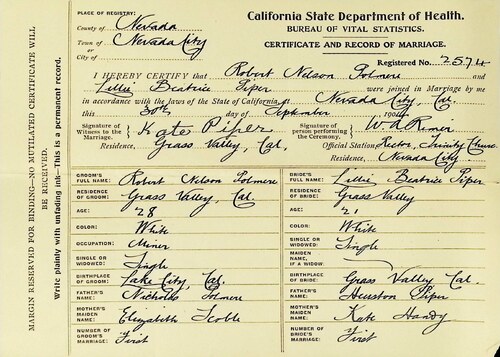 PLACE OF REGISTRY:
County of Nevada
Town of Nevada City
or
City of
California State Department of Health.
BUREAU OF VITAL STATISTICS.
CERTIFICATE AND RECORD OF MARRIAGE.
Registered No. 2574
I HEREBY CERTIFY that Robert Nelson Polmere and
Lillie Beatrice Piper were joined in Marriage by me
in accordance with the laws of the State of California, at Nevada City, Cal.
this 30th day of September 1904
Signature of Witness to the Marriage, Kate Piper
Signature of person performing the Ceremony,
Residence, Grass Valley, Cal.
Official Station Rector, Trinity Church
Residence, Nevada City.
GROOM'S FULL NAME: Robert Nelson Polmere
BRIDE'S FULL NAME: Lillie Beatrice Piper
RESIDENCE OF GROOM: Grass Valley, Cal.
RESIDENCE OF BRIDE: Grass Valley
AGE: 28
AGE: 21
COLOR: White
COLOR: White
OCCUPATION: Miner
SINGLE OR WIDOWED: Single
SINGLE OR WIDOWED: Single
MAIDEN NAME, IF A WIDOW:
BIRTHPLACE OF GROOM: Lake City, Cal.
BIRTHPLACE OF BRIDE: Grass Valley Cal.
FATHER'S NAME: Nicholas Polmere
FATHER'S NAME: Houston Piper
MOTHER'S MAIDEN NAME: Elizabeth
MOTHER'S MAIDEN NAME: Kate Handy
NUMBER OF GROOM'S MARRIAGE: First
NUMBER OF BRIDE'S MARRIAGE: First
MARGIN RESERVED FOR BINDING—NO MUTILATED CERTIFICATE WILL
BE RECEIVED.
Write plainly with unfading ink—This is a permanent record.